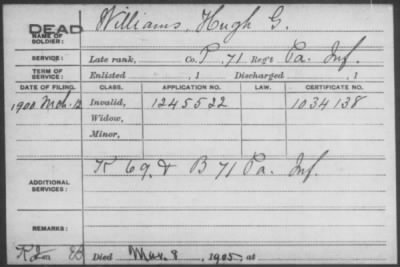 DEAD
NAME OF SOLDIER: Williams, Hugh G.
SERVICE: Late rank, Co. P. 71 Reg't Pa. Inf.
TERM OF SERVICE: Enlisted , 1 Discharged , 1
DATE OF FILING. CLASS. APPLICATION NO. LAW. CERTIFICATE NO.
1900 Mch. 12 Invalid, 1245522 1034138
Widow,
Minor,
ADDITIONAL SERVICES: K 69, & B 71 Pa. Inf.
REMARKS:
Died Mar. 8, 1905, at